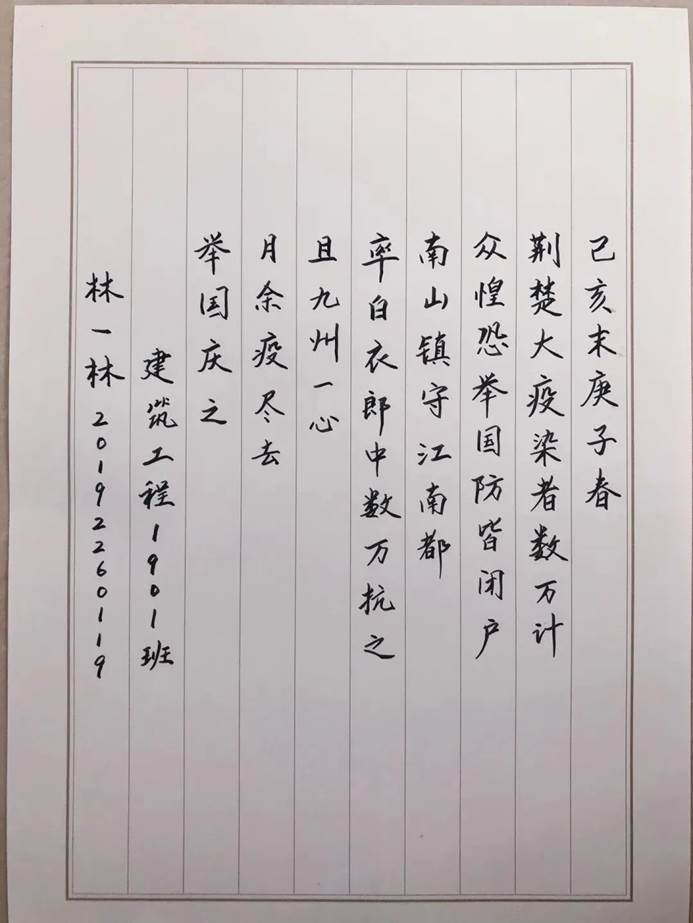 己亥末庚子春
荆楚大疫染者数万计
众惶恐举国防皆闭户
南山镇守江南都
率白衣郎中数万抗之
且九州一心
月余疫尽去
举国庆之
建筑工程1901班
林一林20192260119